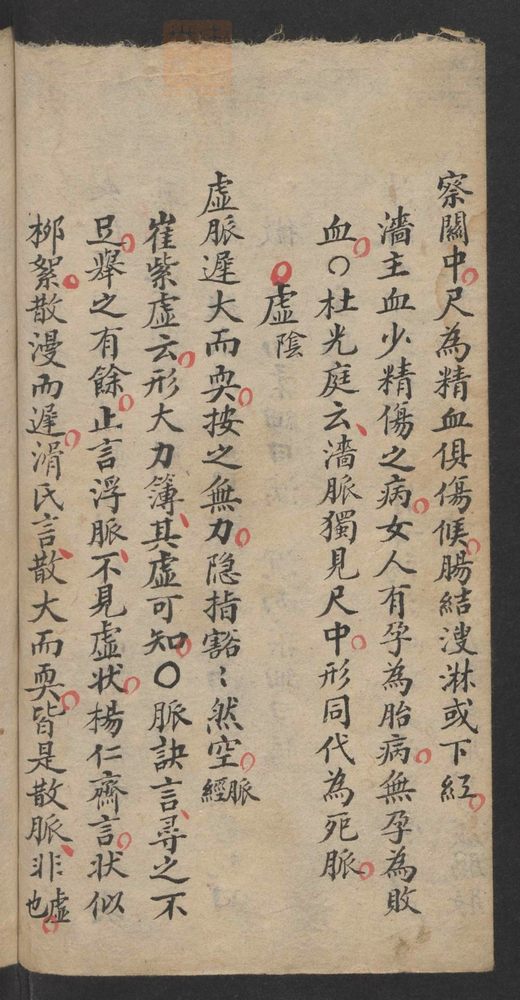 察關中尺為精血俱傷候腸結溲淋或下紅
濇主血少精傷之病女人有孕為胎病無孕為敗
血○杜光庭云濇脈獨見尺中形同代為死脈
虛陰
虛脈遲大而耎按之無力隐指豁〻然空脈經
崔紫虛云形大力簿其虛可知○脈訣言尋之不
足舉之有餘止言浮脈不見虛状楊仁齋言状似
栁絮散漫而遲滑氏言散大而耎皆是散脈非虛也